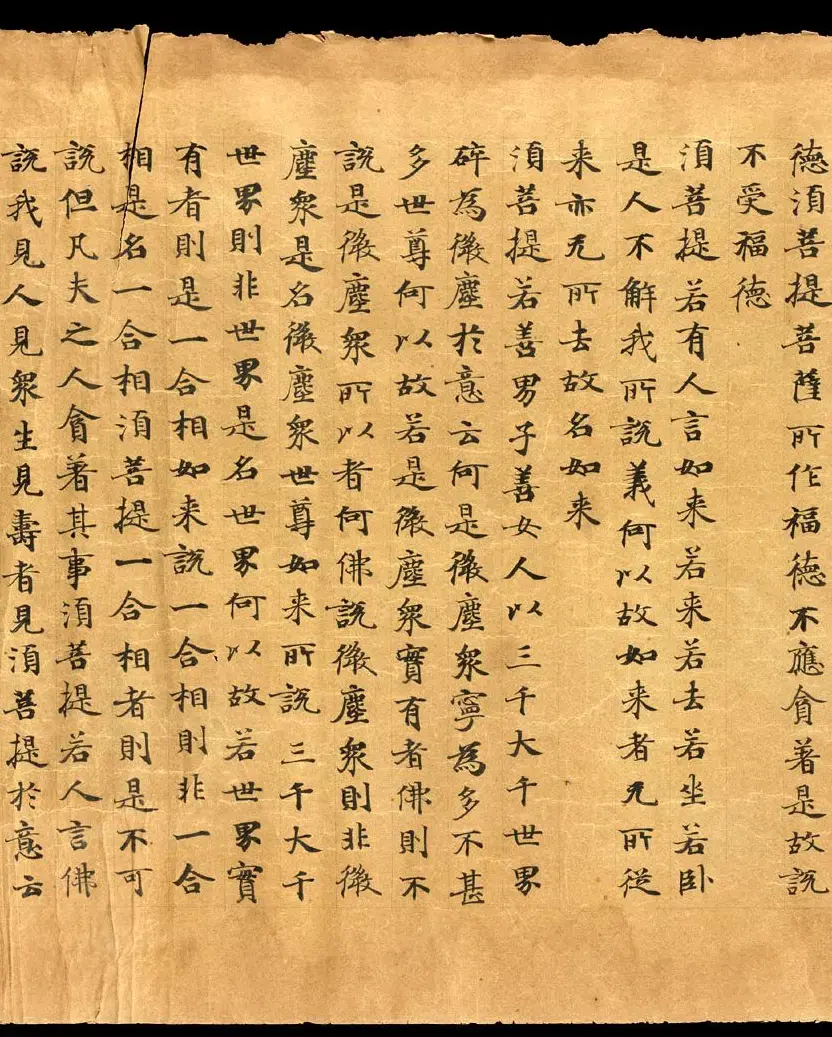 德須菩提菩薩所作福德不應貪著是故說
不受福德
須菩提若有人言如来若来若去若坐若卧
是人不解我所說義何以故如来者无所從
来亦无所去故名如来
須菩提若善男子善女人以三千大千世界
碎為微塵於意云何是微塵衆寧為多不甚
多世尊何以故若是微塵衆實有者佛則不
說是微塵衆所以者何佛說微塵衆則非微
塵衆是名微塵衆世尊如来所說三千大千
世界則非世界是名世界何以故若世界實
有者則是一合相如来說一合相則非一合
相是名一合相須菩提一合相者則是不可
說但凡夫之人貪著其事須菩提若人言佛
說我見人見衆生見壽者見須菩提於意云